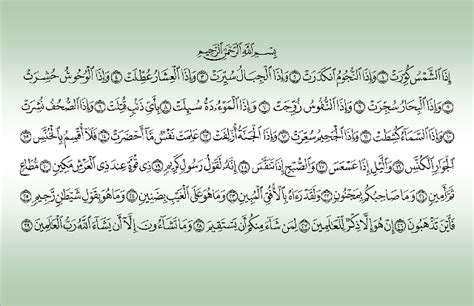 بِسْمِ اللَّهِ الرَّحْمَٰنِ الرَّحِيمِ
إِذَا الشَّمْسُ كُوِّرَتْ ۝١ وَإِذَا النُّجُومُ انْكَدَرَتْ ۝٢ وَإِذَا الْجِبَالُ سُيِّرَتْ ۝٣ وَإِذَا الْعِشَارُ عُطِّلَتْ ۝٤ وَإِذَا الْوُحُوشُ حُشِرَتْ
۝٥ وَإِذَا الْبِحَارُ سُجِّرَتْ ۝٦ وَإِذَا النُّفُوسُ زُوِّجَتْ ۝٧ وَإِذَا الْمَوْءُودَةُ سُئِلَتْ ۝٨ بِأَيِّ ذَنْبٍ قُتِلَتْ ۝٩ وَإِذَا الصُّحُفُ نُشِرَتْ
۝١٠ وَإِذَا السَّمَاءُ كُشِطَتْ ۝١١ وَإِذَا الْجَحِيمُ سُعِّرَتْ ۝١٢ وَإِذَا الْجَنَّةُ أُزْلِفَتْ ۝١٣ عَلِمَتْ نَفْسٌ مَا أَحْضَرَتْ ۝١٤ فَلَا أُقْسِمُ بِالْخُنَّسِ ۝١٥
الْجَوَارِ الْكُنَّسِ ۝١٦ وَاللَّيْلِ إِذَا عَسْعَسَ ۝١٧ وَالصُّبْحِ إِذَا تَنَفَّسَ ۝١٨ إِنَّهُ لَقَوْلُ رَسُولٍ كَرِيمٍ ۝١٩ ذِي قُوَّةٍ عِنْدَ ذِي الْعَرْشِ مَكِينٍ ۝٢٠ مُطَاعٍ
ثَمَّ أَمِينٍ ۝٢١ وَمَا صَاحِبُكُمْ بِمَجْنُونٍ ۝٢٢ وَلَقَدْ رَآهُ بِالْأُفُقِ الْمُبِينِ ۝٢٣ وَمَا هُوَ عَلَى الْغَيْبِ بِضَنِينٍ ۝٢٤ وَمَا هُوَ بِقَوْلِ شَيْطَانٍ رَجِيمٍ ۝٢٥
فَأَيْنَ تَذْهَبُونَ ۝٢٦ إِنْ هُوَ إِلَّا ذِكْرٌ لِلْعَالَمِينَ ۝٢٧ لِمَنْ شَاءَ مِنْكُمْ أَنْ يَسْتَقِيمَ ۝٢٨ وَمَا تَشَاءُونَ إِلَّا أَنْ يَشَاءَ اللَّهُ رَبُّ الْعَالَمِينَ ۝٢٩